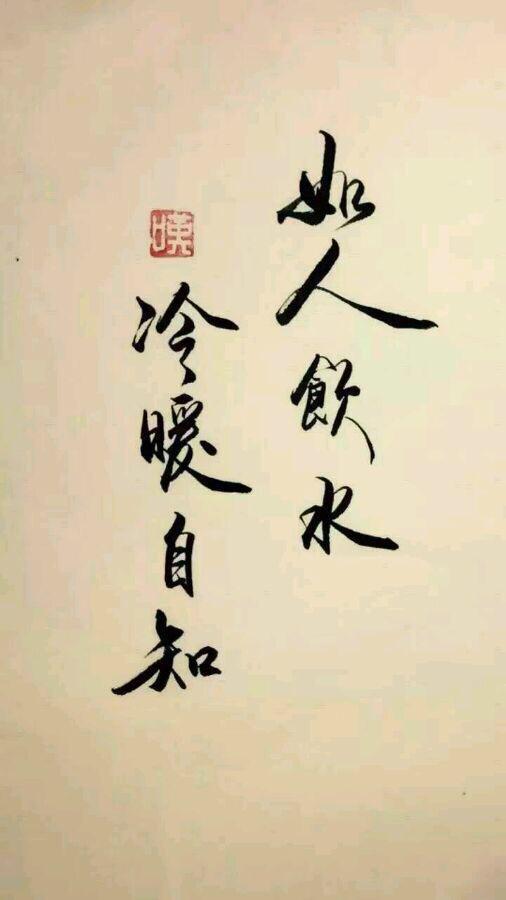 如人飲水
冷暖自知